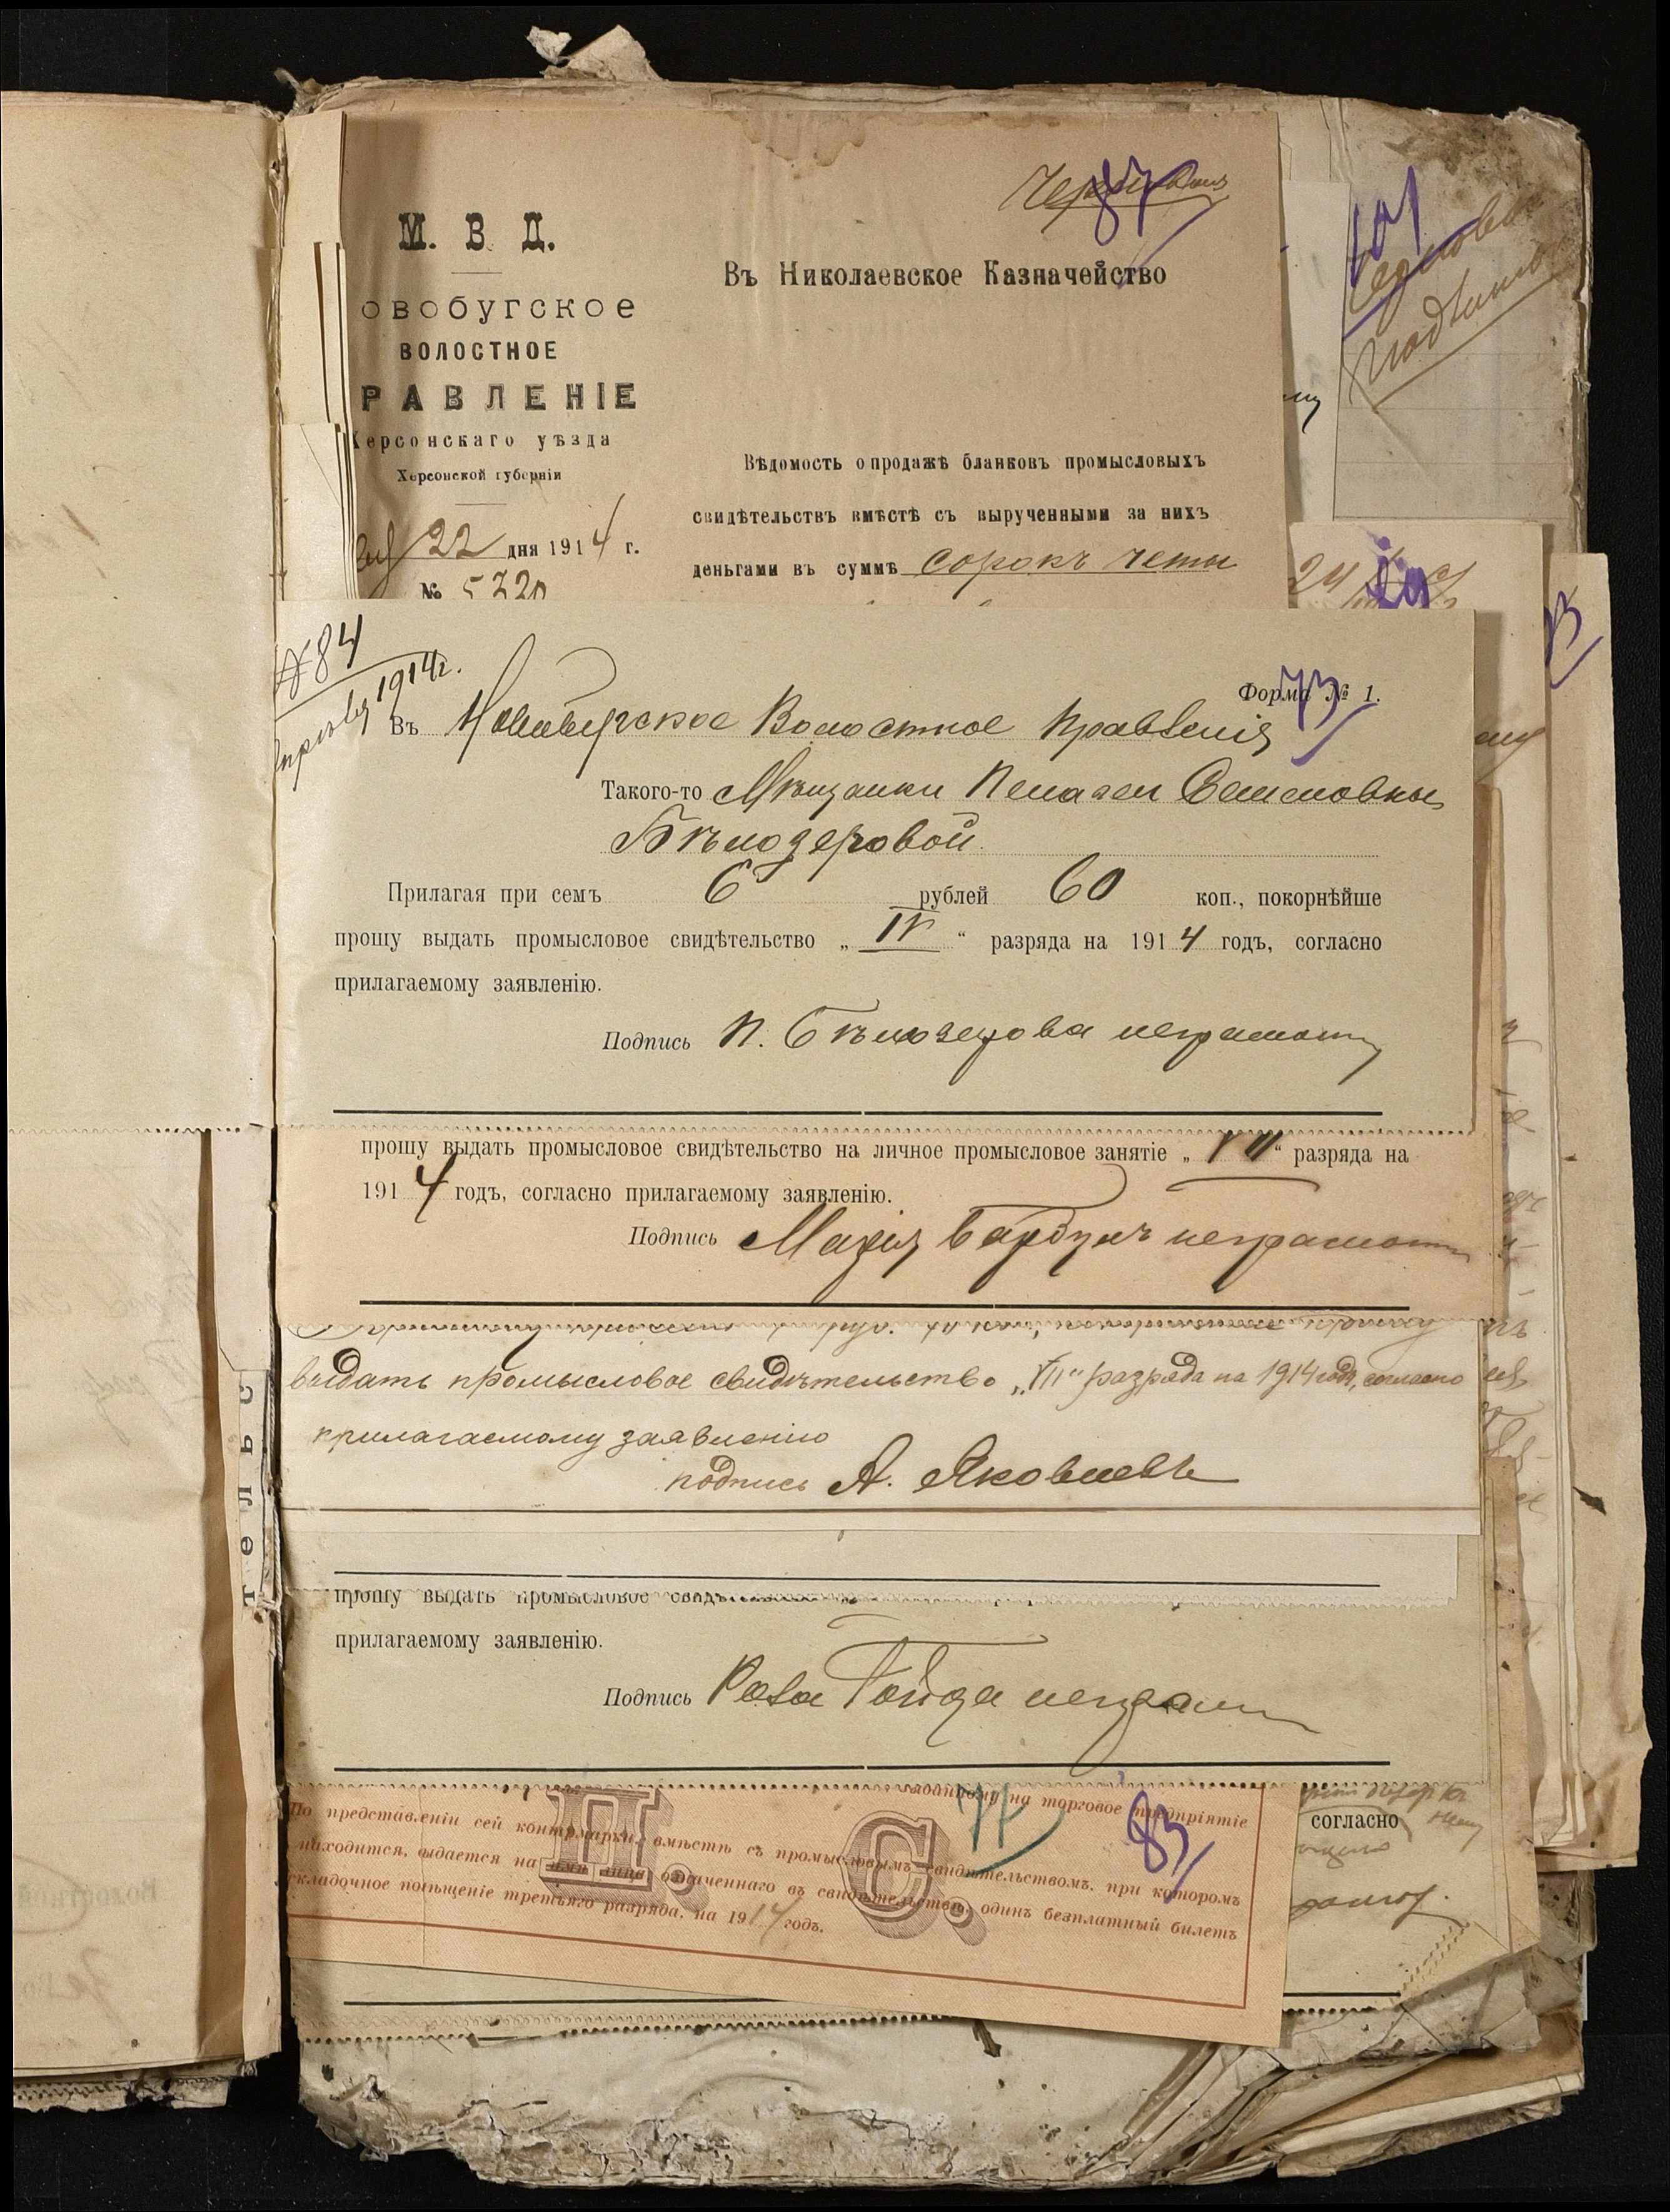 М. В. Д.
овобугское
ВОЛОСТНОЕ
РАВЛЕНІЕ
Херсонскаго уѣзда
Херсонской губерніи
22 дня 1914 г.
№ 5720
87
Въ Николаевское Казначейство
Вѣдомость о продажѣ бланковъ промысловыхъ
свидѣтельствъ вмѣстѣ съ вырученными за нихъ
деньгами въ суммѣ сорокъ четы
№ 84
1914 г.
Форма № 1.
73
Въ Новобугское Волостное Правленія
Такого-то Мѣщанки Пелагеи Семеновны
Бѣлозеровой
Прилагая при семъ 6 рублей 60 коп., покорнѣйше
прошу выдать промысловое свидѣтельство „ IV “ разряда на 1914 годъ, согласно
прилагаемому заявленію.
Подпись П. Бѣлозерова неграмотн
прошу выдать промысловое свидѣтельство на личное промысловое занятіе „ VII “ разряда на
1914 годъ, согласно прилагаемому заявленію.
Подпись Марія неграмотн
выдать промысловое свидѣтельство „III“ разряда на 1914 годъ, согласно
прилагаемому заявленію
подпись А. Яковлевъ
тельс
прошу выдать промысловое свидѣ
прилагаемому заявленію.
Подпись Роза Гойда неграм
выданному на торговое предпріятіе
По представленіи сей контрмарки, вмѣстѣ съ промысловымъ свидѣтельствомъ, при которомъ
находится, выдается на имя лица, означеннаго въ свидѣтельствѣ, одинъ безплатный билетъ
складочное помѣщеніе третьяго разряда, на 1914 годъ.
П. С.
83
согласно